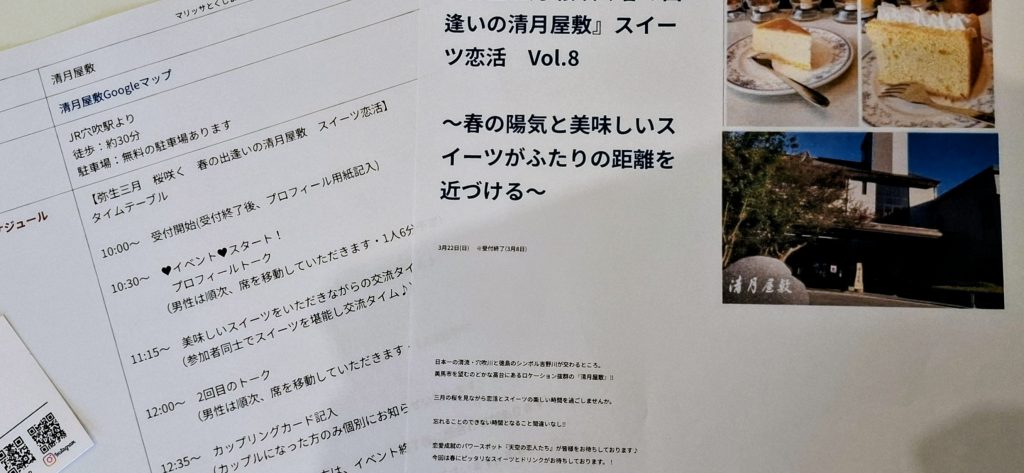 マリッサとくしま
清月屋敷
清月屋敷Googleマップ
JR穴吹駅より
徒歩：約30分
駐車場：無料の駐車場あります
【弥生三月　桜咲く　春の出逢いの清月屋敷　スイーツ恋活】
タイムテーブル
ケジュール
10:00～　受付開始(受付終了後、プロフィール用紙記入)
10:30～　♥イベント♥スタート！
プロフィールトーク
(男性は順次、席を移動していただきます・1人6分
11:15～　美味しいスイーツをいただきながらの交流タイ
(参加者同士でスイーツを堪能し交流タイム♪
12:00～　2回目のトーク
(男性は順次、席を移動していただきます・
12:35～　カップリングカード記入
(カップルになった方のみ個別にお知ら
は、イベント終
Instagram
逢いの清月屋敷』スイー
ツ恋活　Vol.8
～春の陽気と美味しいス
イーツがふたりの距離を
近づける～
3月22日(日)　※受付終了(3月8日)
清月屋敷
日本一の清流・穴吹川と徳島のシンボル吉野川が交わるところ。
美馬市を望むのどかな高台にあるロケーション抜群の『清月屋敷』!!
三月の桜を見ながら恋活とスイーツの楽しい時間を過ごしませんか。
忘れることのできない時間となること間違いなし!!
恋愛成就のパワースポット『天空の恋人たち』が皆様をお待ちしております♪
今回は春にピッタリなスイーツとドリンクがお待ちしております。！